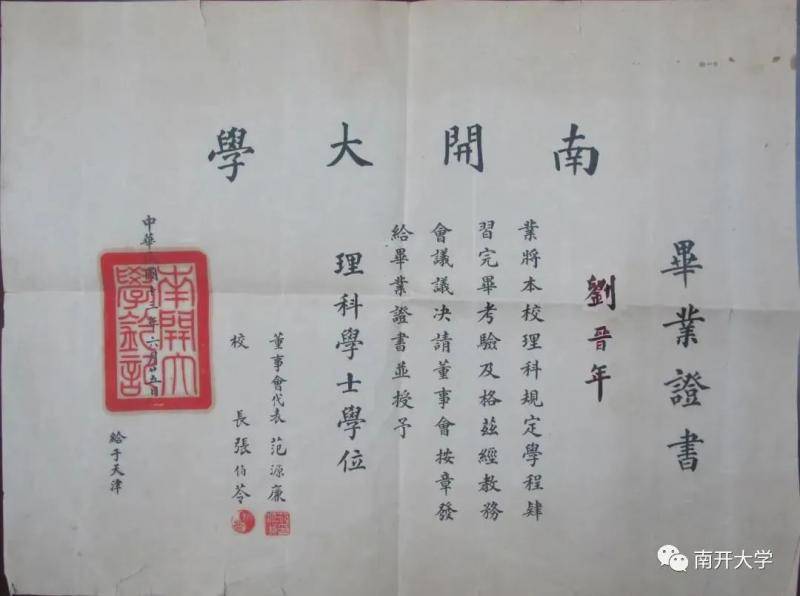 南開大學
畢業證書
劉晋年
業將本校理科規定學程肄
習完畢考驗及格茲經教務
會議議决請董事會按章發
給畢業證書並授予
理科學士學位
董事會代表 范源廉
校長 張伯苓
中華民國十三年六月
給于天津
南開大學鈐記
南开大学